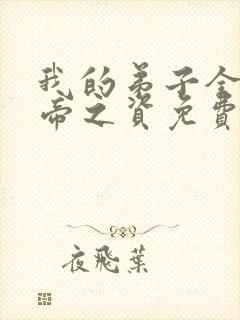 我的弟子全
帝之資免費
夜飛葉